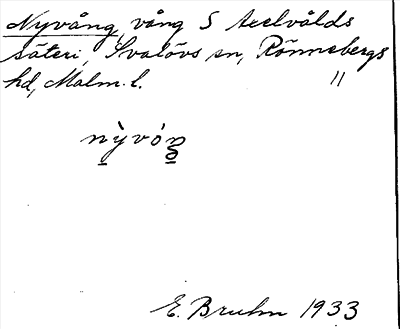 Nyvång, vång S Axelvålds
säteri, Svalövs sn, Rönnebergs
hd, Malm. l. "
nỳvóŋ
E. Bruhn 1933